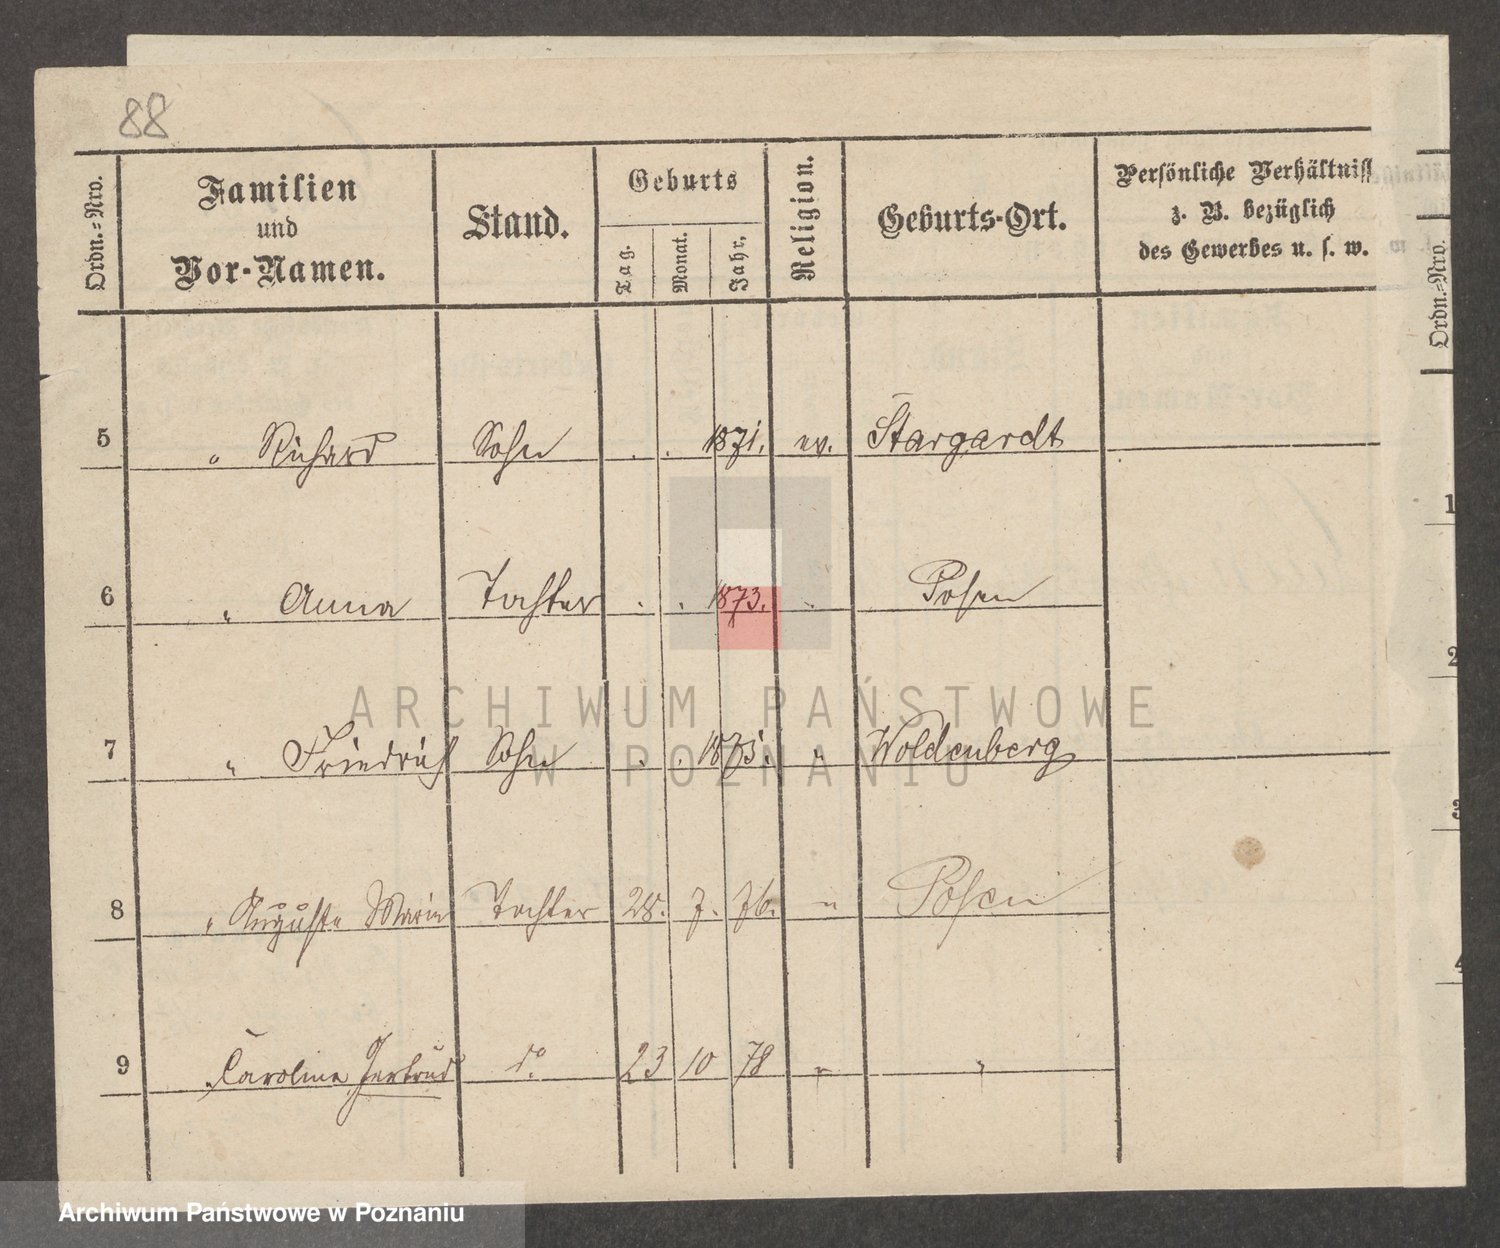 88
Ordn.-Nro.
Familien
und
Vor-Namen.
Stand.
Geburts
Tag.
Monat.
Jahr,
Religion.
Geburts-Ort.
Persönliche Verhältniss
z. B. bezüglich
des Gewerbes u. s. w.
Ordn.-Nro.
5 " Richard Sohn . . 1871. ev. Stargardt
1
6 " Anna Tochter . . 1873. " Posen
2
ARCHIWUM PAŃSTWOWE
W POZNANIU
7 " Friedrich Sohn . . 1875. " Woldenberg
3
8 " Auguste Marie Tochter 28. 7. 76. " Posen
4
9 " Caroline Gertrud do 23 10 78 " "
Archiwum Państwowe w Poznaniu